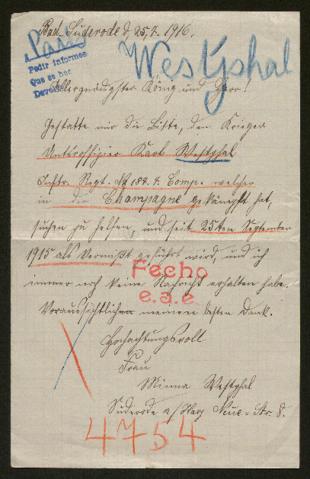 Bad Suderode d. 25.2. 1916.
A Paris
Pedir informes
Que es her
Westphal
Allergnädigster König und Herr!
Gestatte mir die Bitte, den Krieger
Unteroffizier Karl Westphal
Inftr. Regt. No 188. 7. Comp. welcher
in der Champagne gekämpft hat,
suchen zu helfen, und seit 25ten September
1915 als Vermißt geführt wird, und ich
immer noch keine Nachricht erhalten habe.
Fecho
e.a.e.
Voraussichtlich meinen besten Dank.
Hochachtungsvoll
Frau
Minna Westphal
Suderode a/Harz Neue-Str. 8.
4754